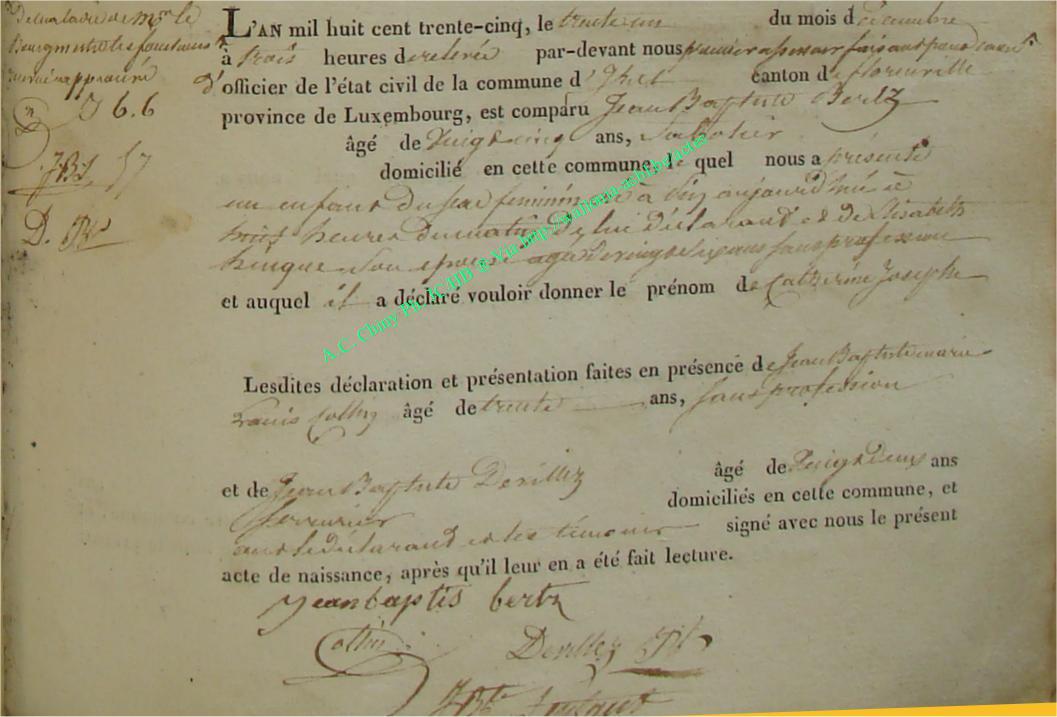 de maladie de Mr le
Bourgmestre les fonctions
approuvé
J 6.6
JBJ
D. JB
L'AN mil huit cent trente-cinq, le trente un du mois décembre
à trois heures de relevée par-devant nous premier assesseur faisant pour cause
d'officier de l'état civil de la commune d'Izel canton de florenville
province de Luxembourg, est comparu Jean Baptiste Bertz
âgé de vingt cinq ans, Sabotier
domicilié en cette commune, le quel nous a présenté
un enfant du sexe feminin né à aujourd'hui à
heures du matin de lui déclarant et de Elisabeth
hinque son epouse agée de vingt six ans sans profession
et auquel il a déclaré vouloir donner le prénom de Catherine Josephe
Lesdites déclaration et présentation faites en présence de Jean Baptiste marie
Louis Collin âgé de trente ans, sans profession
et de Jean Baptiste Devillez âgé de vingt deux ans
serrurier domiciliés en cette commune, et
ont le déclarant et les témoins signé avec nous le présent
acte de naissance, après qu'il leur en a été fait lecture.
jean baptis bertz
Collin Devillez JB
JBte
A.C. Chiny Ph. IC/HB @ Via http://wallonia-asbl.be/actes